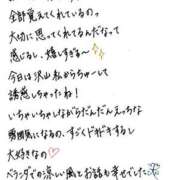 全部覚えてくれているのっ
大切に思ってくれてるんだなって
感じるし、嬉しすぎる〜
今日は沢山 私からちゅーして
誘惑しちゃったね！
いちゃいちゃしながらだんだんえっちな
雰囲気になるの、すごくドキドキするし
大好きなの♡
ベランダでの涼しい風とお話も幸せでした